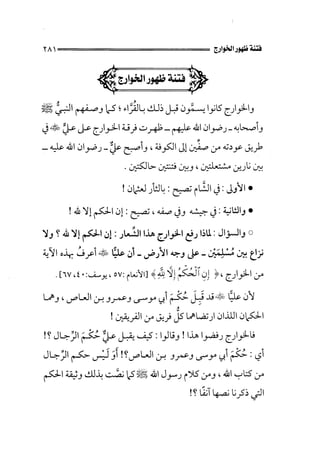 فتنة ظهور الخوارج ٢٨١
فتنة ظهور الخوارج
والخوارج كانوا يسمَّون قبل ذلك بالقُرَّاء؛ كما وصفهم النبيُّ ﷺ
وأصحابه - رضوان الله عليهم - ظهرت فرقة الخوارج على عليٍّ ﷺ في
طريق عودته من صفِّين إلى الكوفة، وأصبح عليٌّ - رضوان الله عليه -
بين نارين مشتعلتين، وبين فتنتين حالكتين.
• الأولى: في الشَّام تصيح: بالثأر لعثمان!
• والثانية: في جيشه وفي صفه، تصيح: إن الحكم إلا لله!
○ والسؤال: لماذا رفع الخوارج هذا الشِّعار: إن الحكم إلا لله؟ ولا
نزاع بين مُسْلِمَيْن - على وجه الأرض - أن عليًّا أعرفُ بهذه الآية
من الخوارج، ﴿إِنِ ٱلْحُكْمُ إِلَّا لِلَّهِ﴾ [الأنعام: ٥٧، يوسف: ٤٠، ٦٧].
لأن عليًّا قد قَبِلَ حُكْمَ أبي موسى وعمرو بن العاص، وهما
الحكمان اللذان ارتضاهما كلُّ فريق من الفريقين!
فالخوارج رفضوا هذا! وقالوا: كيف يقبل عليٌّ حُكْمَ الرِّجال؟!
أي: حُكْمَ أبي موسى وعمرو بن العاص؟! أَوَ لَيْس حكم الرِّجال
من كتاب الله، ومن كلام رسول الله ﷺ كما نصَّت بذلك وثيقة الحكم
التي ذكرنا نصها آنفًا؟!